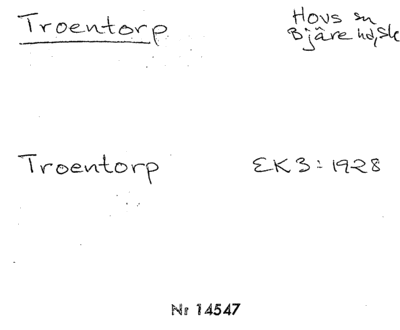 Troentorp
Hovs sn
Bjäre hd, Sk
Troentorp
EK3:1928
Nr 14547